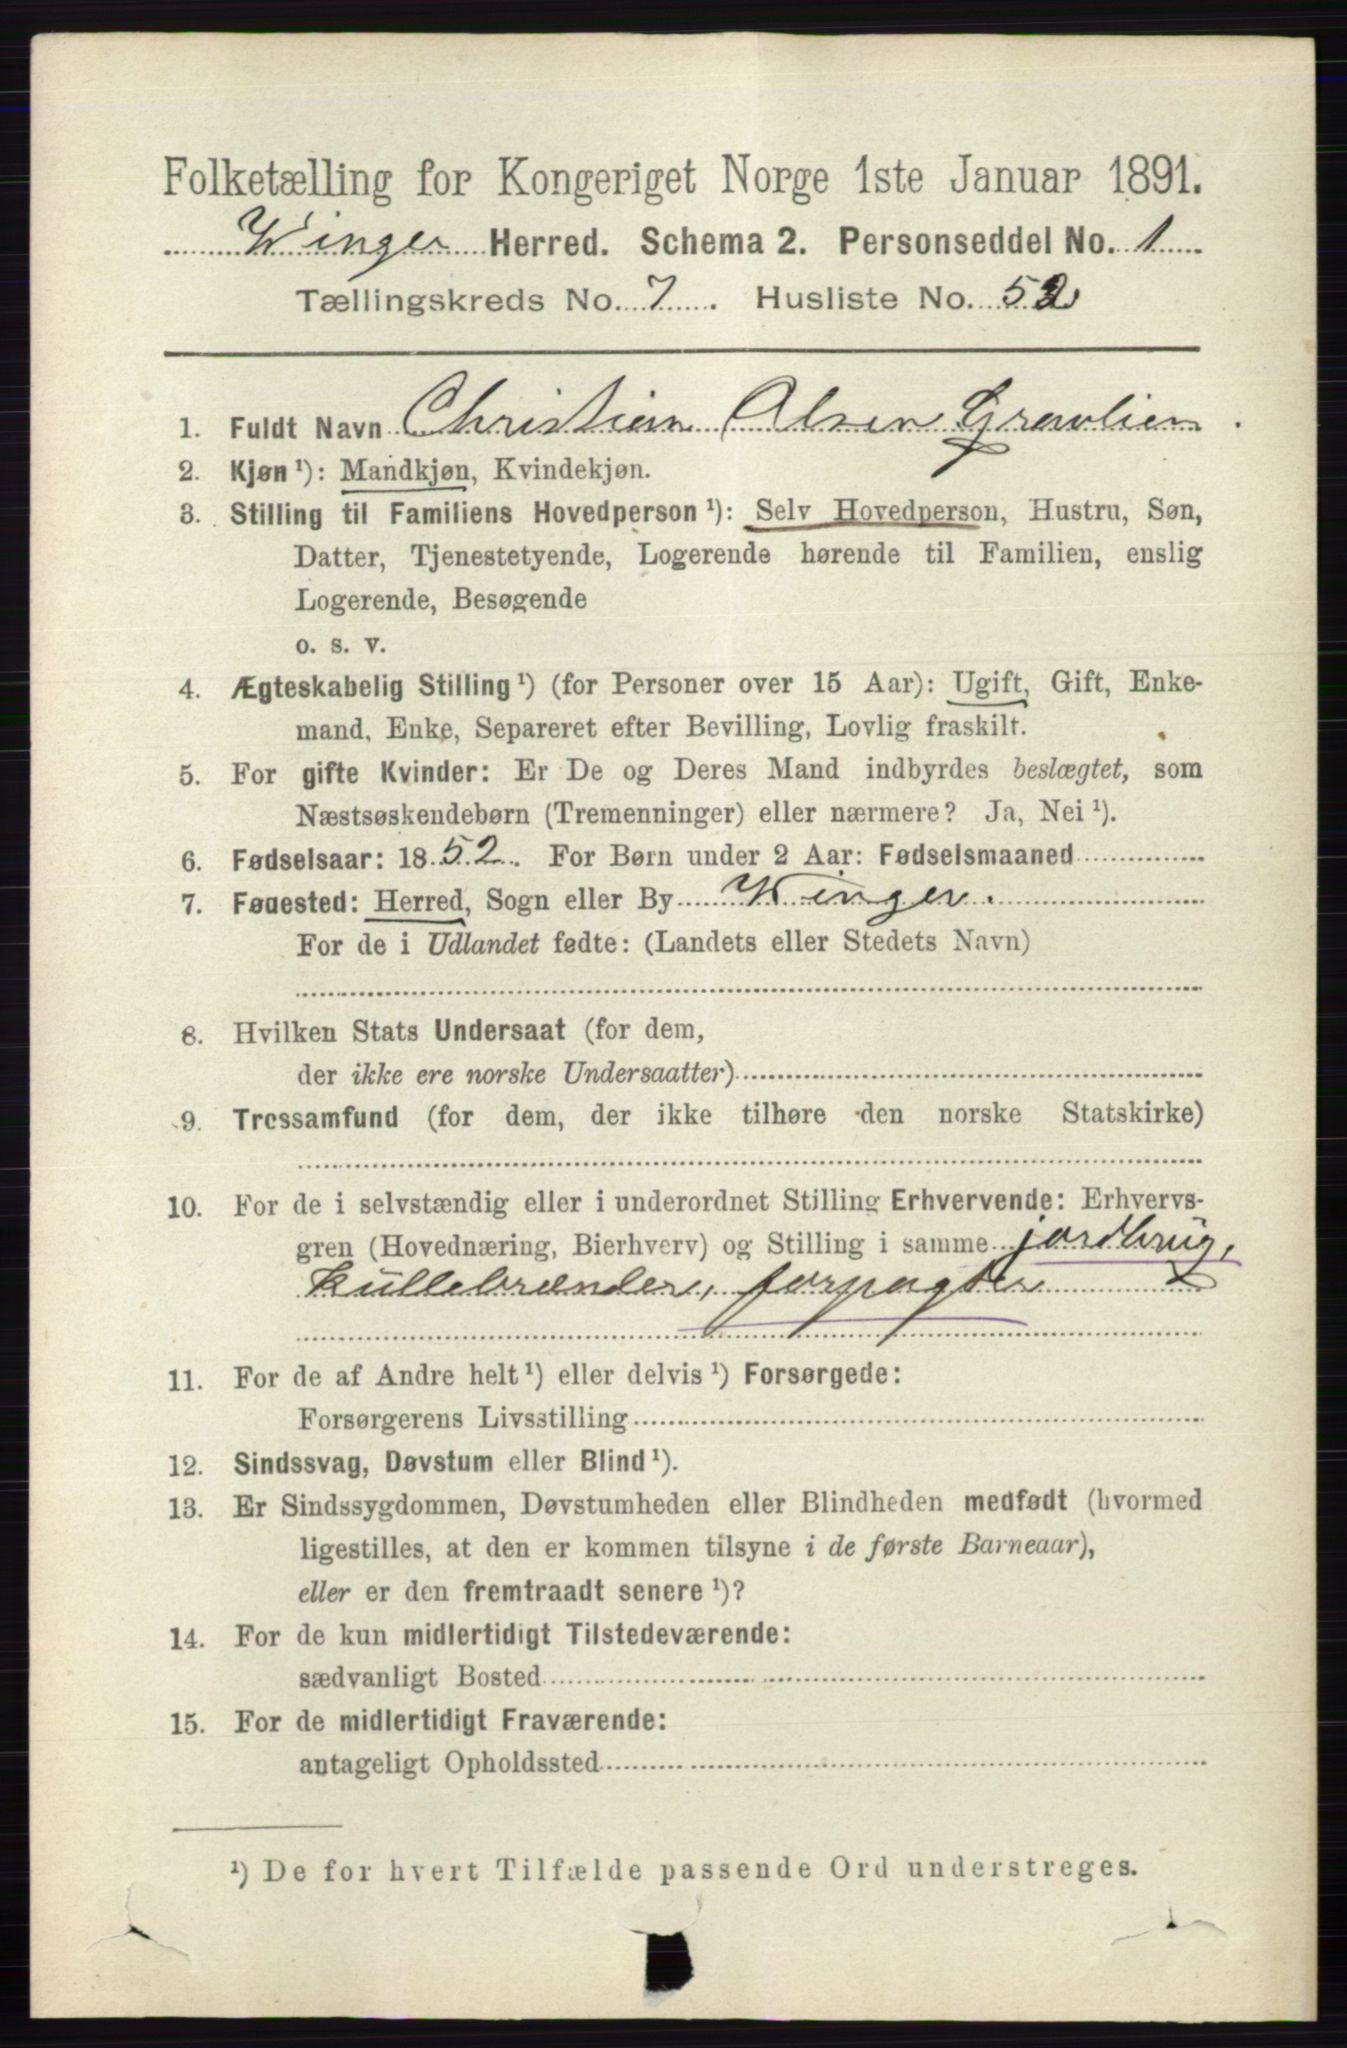 Folketælling for Kongeriget Norge 1ste Januar 1891.
Winger Herred. Schema 2. Personseddel No. 1
Tællingskreds No. 7. Husliste No. 52
1. Fuldt Navn Christian Olsen Gravlien.
2. Kjøn ¹): Mandkjøn, Kvindekjøn.
3. Stilling til Familiens Hovedperson ¹): Selv Hovedperson, Hustru, Søn,
Datter, Tjenestetyende, Logerende hørende til Familien, enslig
Logerende, Besøgende
o. s. v.
4. Ægteskabelig Stilling ¹) (for Personer over 15 Aar): Ugift, Gift, Enke-
mand, Enke, Separeret efter Bevilling, Lovlig fraskilt.
5. For gifte Kvinder: Er De og Deres Mand indbyrdes beslægtet, som
Næstsøskendebørn (Tremenninger) eller nærmere? Ja, Nei ¹).
6. Fødselsaar: 1852. For Børn under 2 Aar: Fødselsmaaned
7. Føuested: Herred, Sogn eller By Winger.
For de i Udlandet fødte: (Landets eller Stedets Navn)
8. Hvilken Stats Undersaat (for dem,
der ikke ere norske Undersaatter)
9. Trossamfund (for dem, der ikke tilhøre den norske Statskirke)
10. For de i selvstændig eller i underordnet Stilling Erhvervende: Erhvervs-
gren (Hovednæring, Bierhverv) og Stilling i samme jordbrug,
kullebrænder, forpagter
11. For de af Andre helt ¹) eller delvis ¹) Forsørgede:
Forsørgerens Livsstilling
12. Sindssvag, Døvstum eller Blind ¹).
13. Er Sindssygdommen, Døvstumheden eller Blindheden medfødt (hvormed
ligestilles, at den er kommen tilsyne i de første Barneaar),
eller er den fremtraadt senere ¹)?
14. For de kun midlertidigt Tilstedeværende:
sædvanligt Bosted
15. For de midlertidigt Fraværende:
antageligt Opholdssted
¹) De for hvert Tilfælde passende Ord understreges.